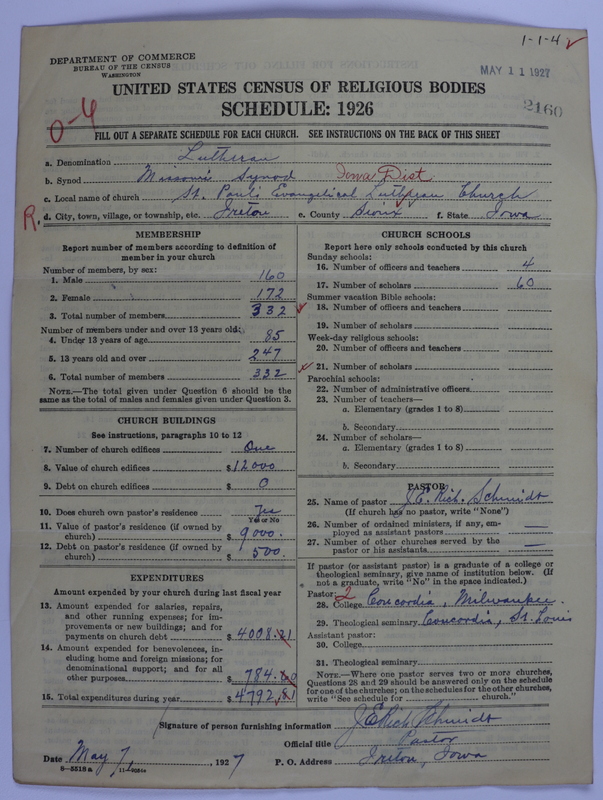 1-1-4
DEPARTMENT OF COMMERCE
BUREAU OF THE CENSUS
WASHINGTON
MAY 11 1927
UNITED STATES CENSUS OF RELIGIOUS BODIES
SCHEDULE: 1926
2160
0-4
FILL OUT A SEPARATE SCHEDULE FOR EACH CHURCH. SEE INSTRUCTIONS ON THE BACK OF THIS SHEET
a. Denomination Lutheran
b. Synod Missouri Synod Iowa Dist
c. Local name of church St. Paul's Evangelical Lutheran Church
R. d. City, town, village, or township, etc. Ireton e. County Sioux f. State Iowa
MEMBERSHIP
Report number of members according to definition of
member in your church
Number of members, by sex:
1. Male 160
2. Female 172
3. Total number of members 332
Number of members under and over 13 years old:
4. Under 13 years of age 85
5. 13 years old and over 247
6. Total number of members 332
NOTE.—The total given under Question 6 should be the
same as the total of males and females given under Question 3.
CHURCH BUILDINGS
See instructions, paragraphs 10 to 12
7. Number of church edifices One
8. Value of church edifices $12000
9. Debt on church edifices $ 0
10. Does church own pastor's residence Yes
Yes or No
11. Value of pastor's residence (if owned by
church) $ 9000.
12. Debt on pastor's residence (if owned by
church) $ 500.
EXPENDITURES
Amount expended by your church during last fiscal year
13. Amount expended for salaries, repairs,
and other running expenses; for im-
provements or new buildings; and for
payments on church debt $ 4008.21
14. Amount expended for benevolences, in-
cluding home and foreign missions; for
denominational support; and for all
other purposes $ 784.60
15. Total expenditures during year $ 4792.81
CHURCH SCHOOLS
Report here only schools conducted by this church
Sunday schools:
16. Number of officers and teachers 4
17. Number of scholars 60
Summer vacation Bible schools:
18. Number of officers and teachers
19. Number of scholars
Week-day religious schools:
20. Number of officers and teachers
21. Number of scholars
Parochial schools:
22. Number of administrative officers
23. Number of teachers—
a. Elementary (grades 1 to 8)
b. Secondary
24. Number of scholars—
a. Elementary (grades 1 to 8)
b. Secondary
PASTOR
25. Name of pastor J.E. Rich. Schmidt
(If church has no pastor, write "None")
26. Number of ordained ministers, if any, em-
ployed as assistant pastors —
27. Number of other churches served by the
pastor or his assistants —
If pastor (or assistant pastor) is a graduate of a college or
theological seminary, give name of institution below. (If
not a graduate, write "No" in the space indicated.)
Pastor: 2
28. College Concordia, Milwaukee.
29. Theological seminary Concordia, St. Louis
Assistant pastor:
30. College
31. Theological seminary
NOTE.—Where one pastor serves two or more churches,
Questions 28 and 29 should be answered only on the schedule
for one of the churches; on the schedules for the other churches,
write "See schedule for church."
Signature of person furnishing information J.E. Rich. Schmidt
Official title Pastor
Date May 7, , 1927 P. O. Address Ireton, Iowa
8—5518a